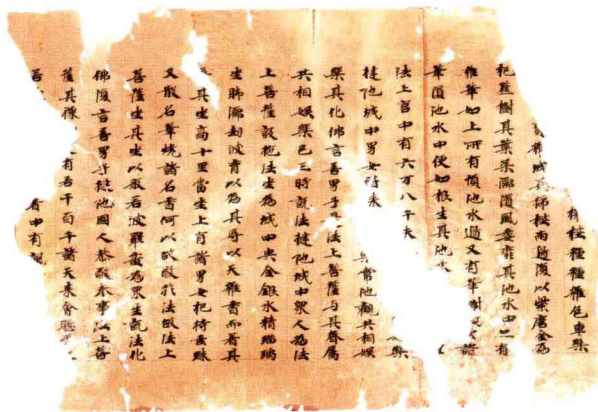 種種雜色車乘
城 梯 兩邊復以紫磨金為
樹其葉 墮隨風 靡其池水中 有
雜華如上所有 池水邊又有華樹 諸
華墮池水中便如根生其池水
法上宮中有六万八千夫 與
揵他城中男女皆來 與常池觀共相娛
樂其化佛言善男子其法上菩薩與其眷屬
共相娛樂已三時說法揵他城中眾人為法
上菩薩敷施法坐為城中央金銀水精瑠璃
坐 劫波育以為具時以天雜香而著其
其坐高十里當坐上有諸男女把持真珠
又散名華燒諸名香何以故敬於法故法上
菩薩坐其坐以般若波羅蜜為眾生說法化
佛復言善男子揵他國人恭敬奉事法上菩
薩其像 有若千百千諸天來會聽
中有